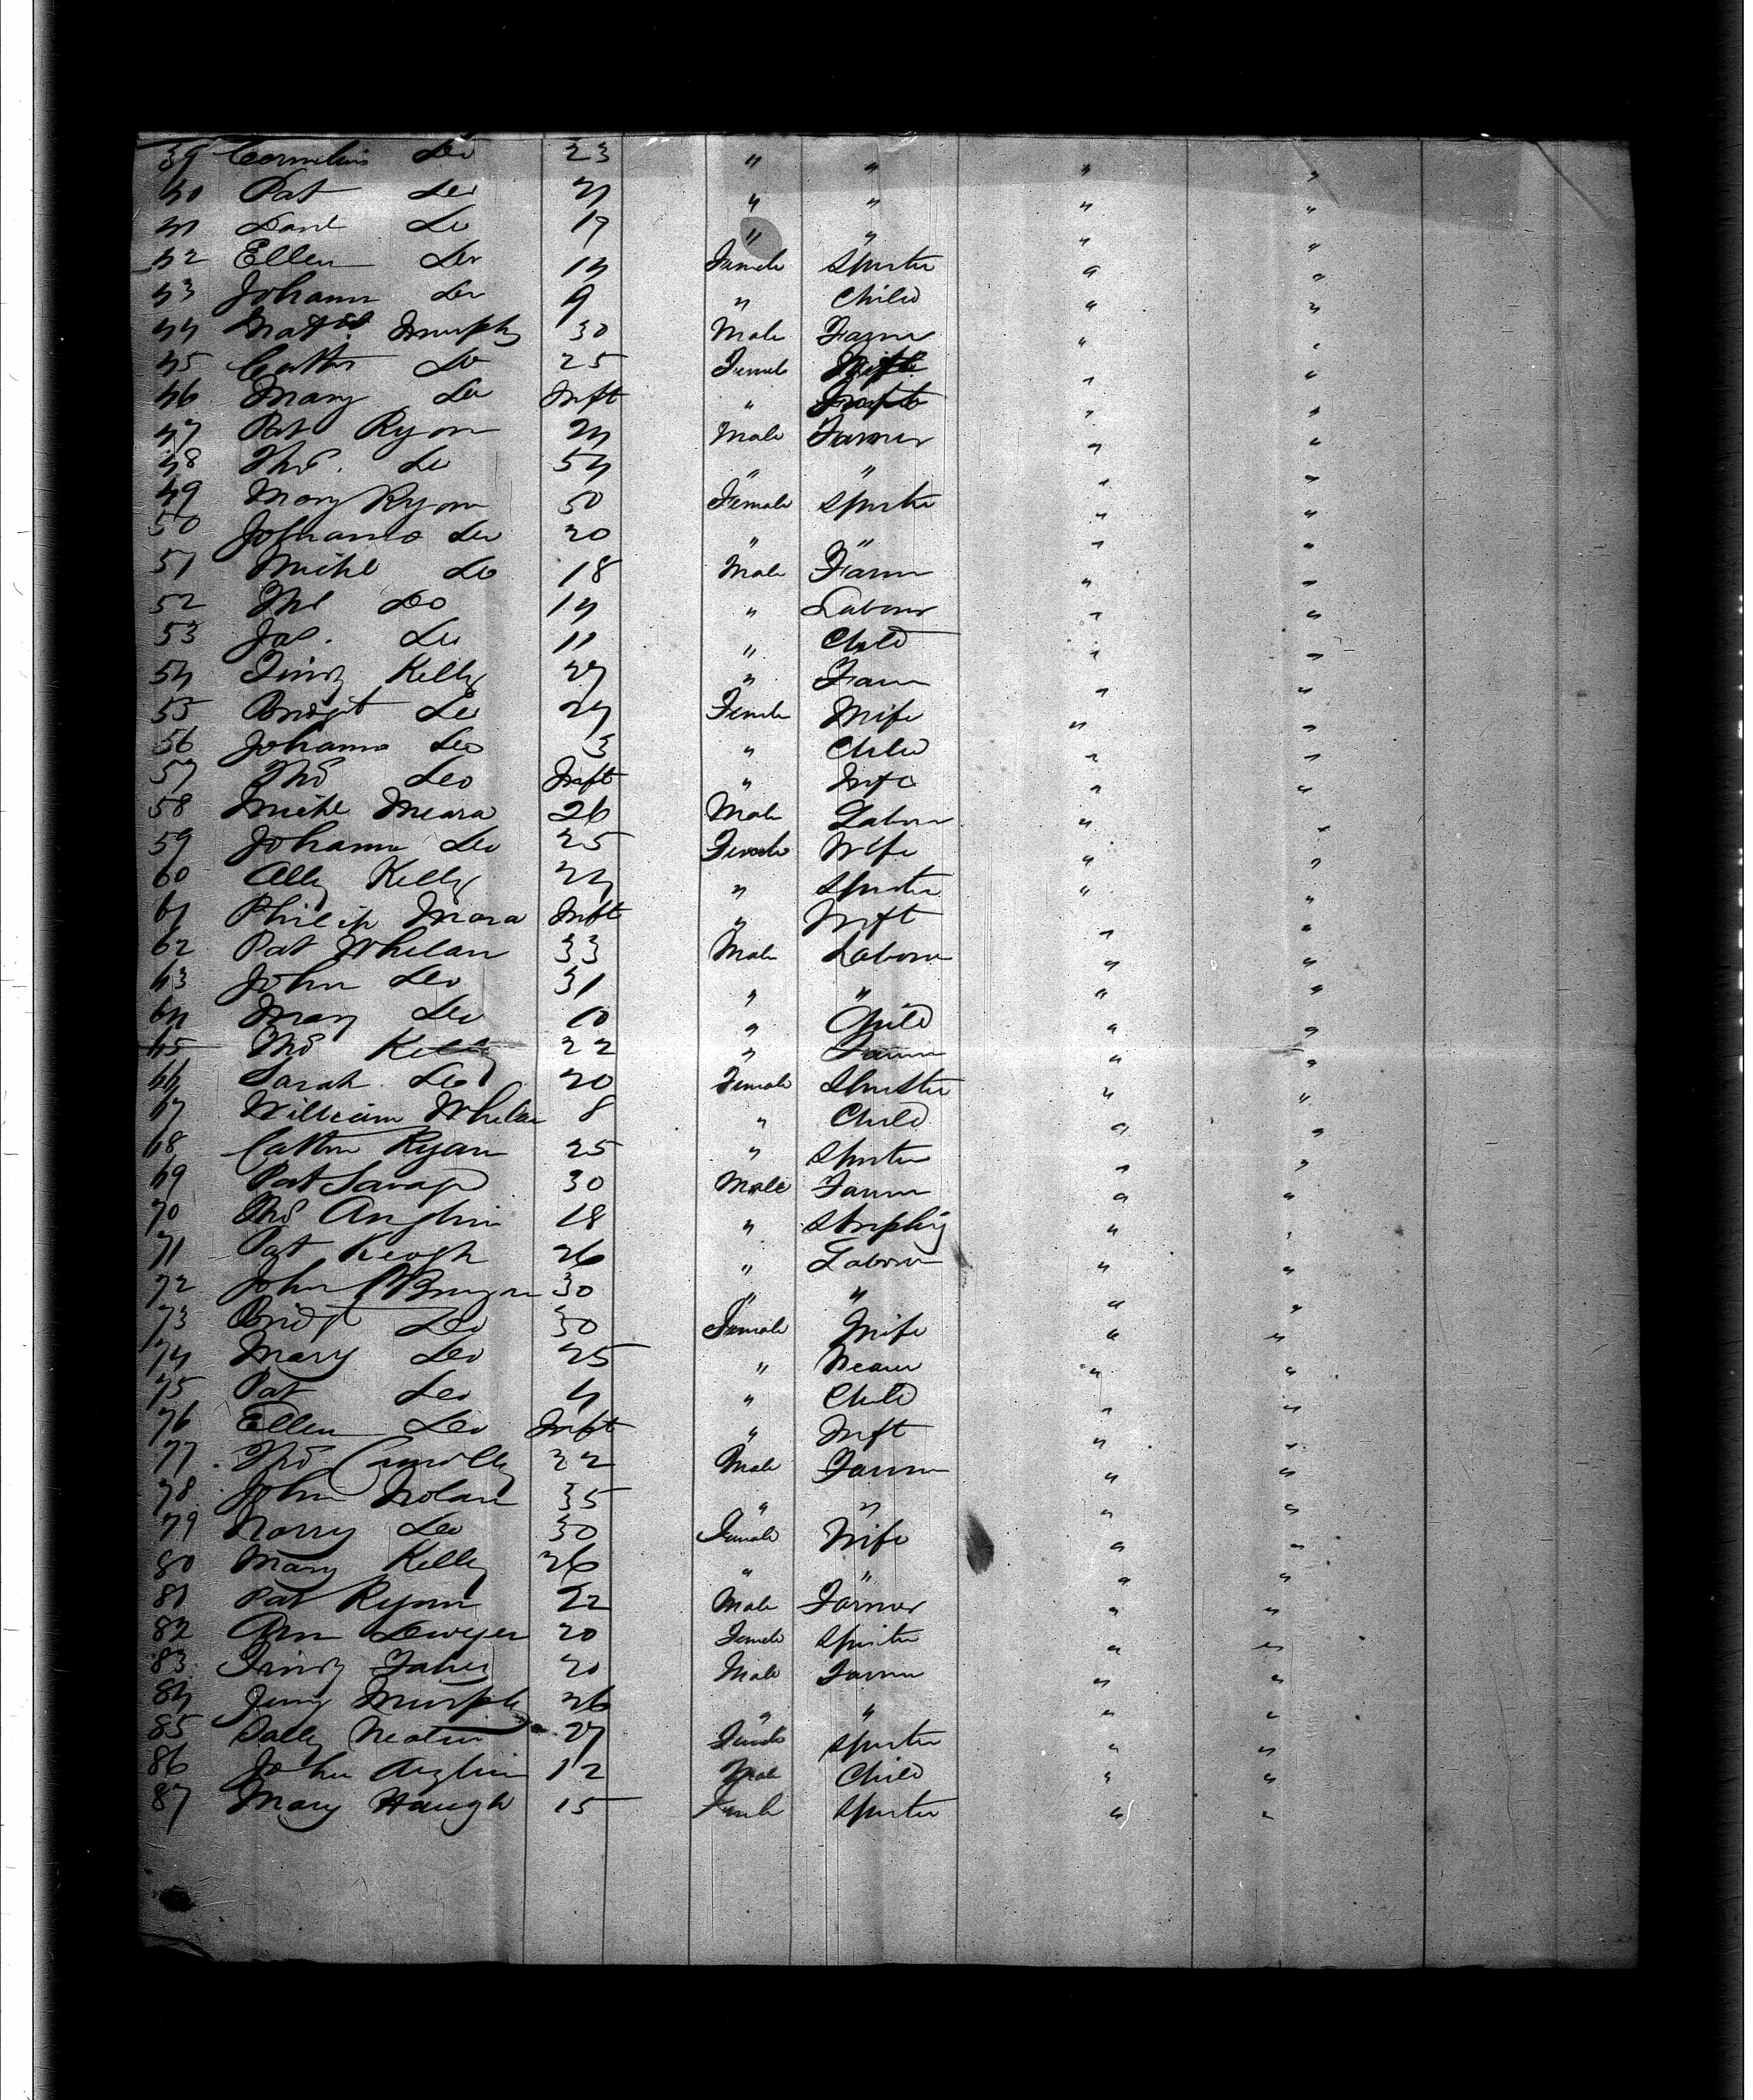 39 Cornelius Do 23 " " " "
40 Pat Do 21 " " " "
41 Danl Do 19 " " " "
42 Ellen Do 14 Female Spinster " "
43 Johanna Do 9 " Child " "
44 Murphy 30 Male Farmer " "
45 Cathn Do 25 Female Wife " "
46 Mary Do Inft " Infte " "
47 Pat Ryan 24 Male Farmer " "
48 Tho. Do 54 " " " "
49 Mary Ryan 50 Female Spinster " "
50 Johanna Do 20 " " " "
51 Michl Do 18 Male Farmer " "
52 Do 14 " Labourer " "
53 Jas. Do 11 " Child " "
54 Timy Kelly 27 " Farmer " "
55 Bridgit Do 24 Female Wife " "
56 Johanna Do 3 " Child " "
57 Tho Do Inft " Inft " "
58 Michl Meara 26 Male Labourer " "
59 Johanna Do 25 Female Wife " "
60 Ally Kelly 24 " Spinster " "
61 Philip Mara Inft " Inft " "
62 Pat Whelan 33 Male Labourer " "
63 John Do 31 " " " "
64 Mary Do 10 " Child " "
65 Tho Kelly 22 " Farmer " "
66 Sarah Do 20 Female Spinster " "
67 William Whelan 8 " Child " "
68 Cathn Ryan 25 " Spinster " "
69 Pat Savage 30 Male Farmer " "
70 Tho Anglin 18 " Stripling " "
71 Pat Keogh 26 " Labourer " "
72 John 30 " " " "
73 Bridt Do 30 Female Wife " "
74 Mary Do 25 " " "
75 Pat Do 4 " Child " "
76 Ellen Do Inft " Inft " "
77 Tho Connolly 22 Male Farmer " "
78 John Nolan 35 " " " "
79 Norry Do 30 Female Wife " "
80 Mary Kelly 26 " " " "
81 Pat Ryan 22 Male Farmer " "
82 Ann Dwyer 20 Female Spinster " "
83 Timy Fahey 20 Male Farmer " "
84 Murphy 26 " " " "
85 Sally 27 Female Spinster " "
86 John Anglin 12 Male Child " "
87 Mary Haugh 15 Female Spinster " "